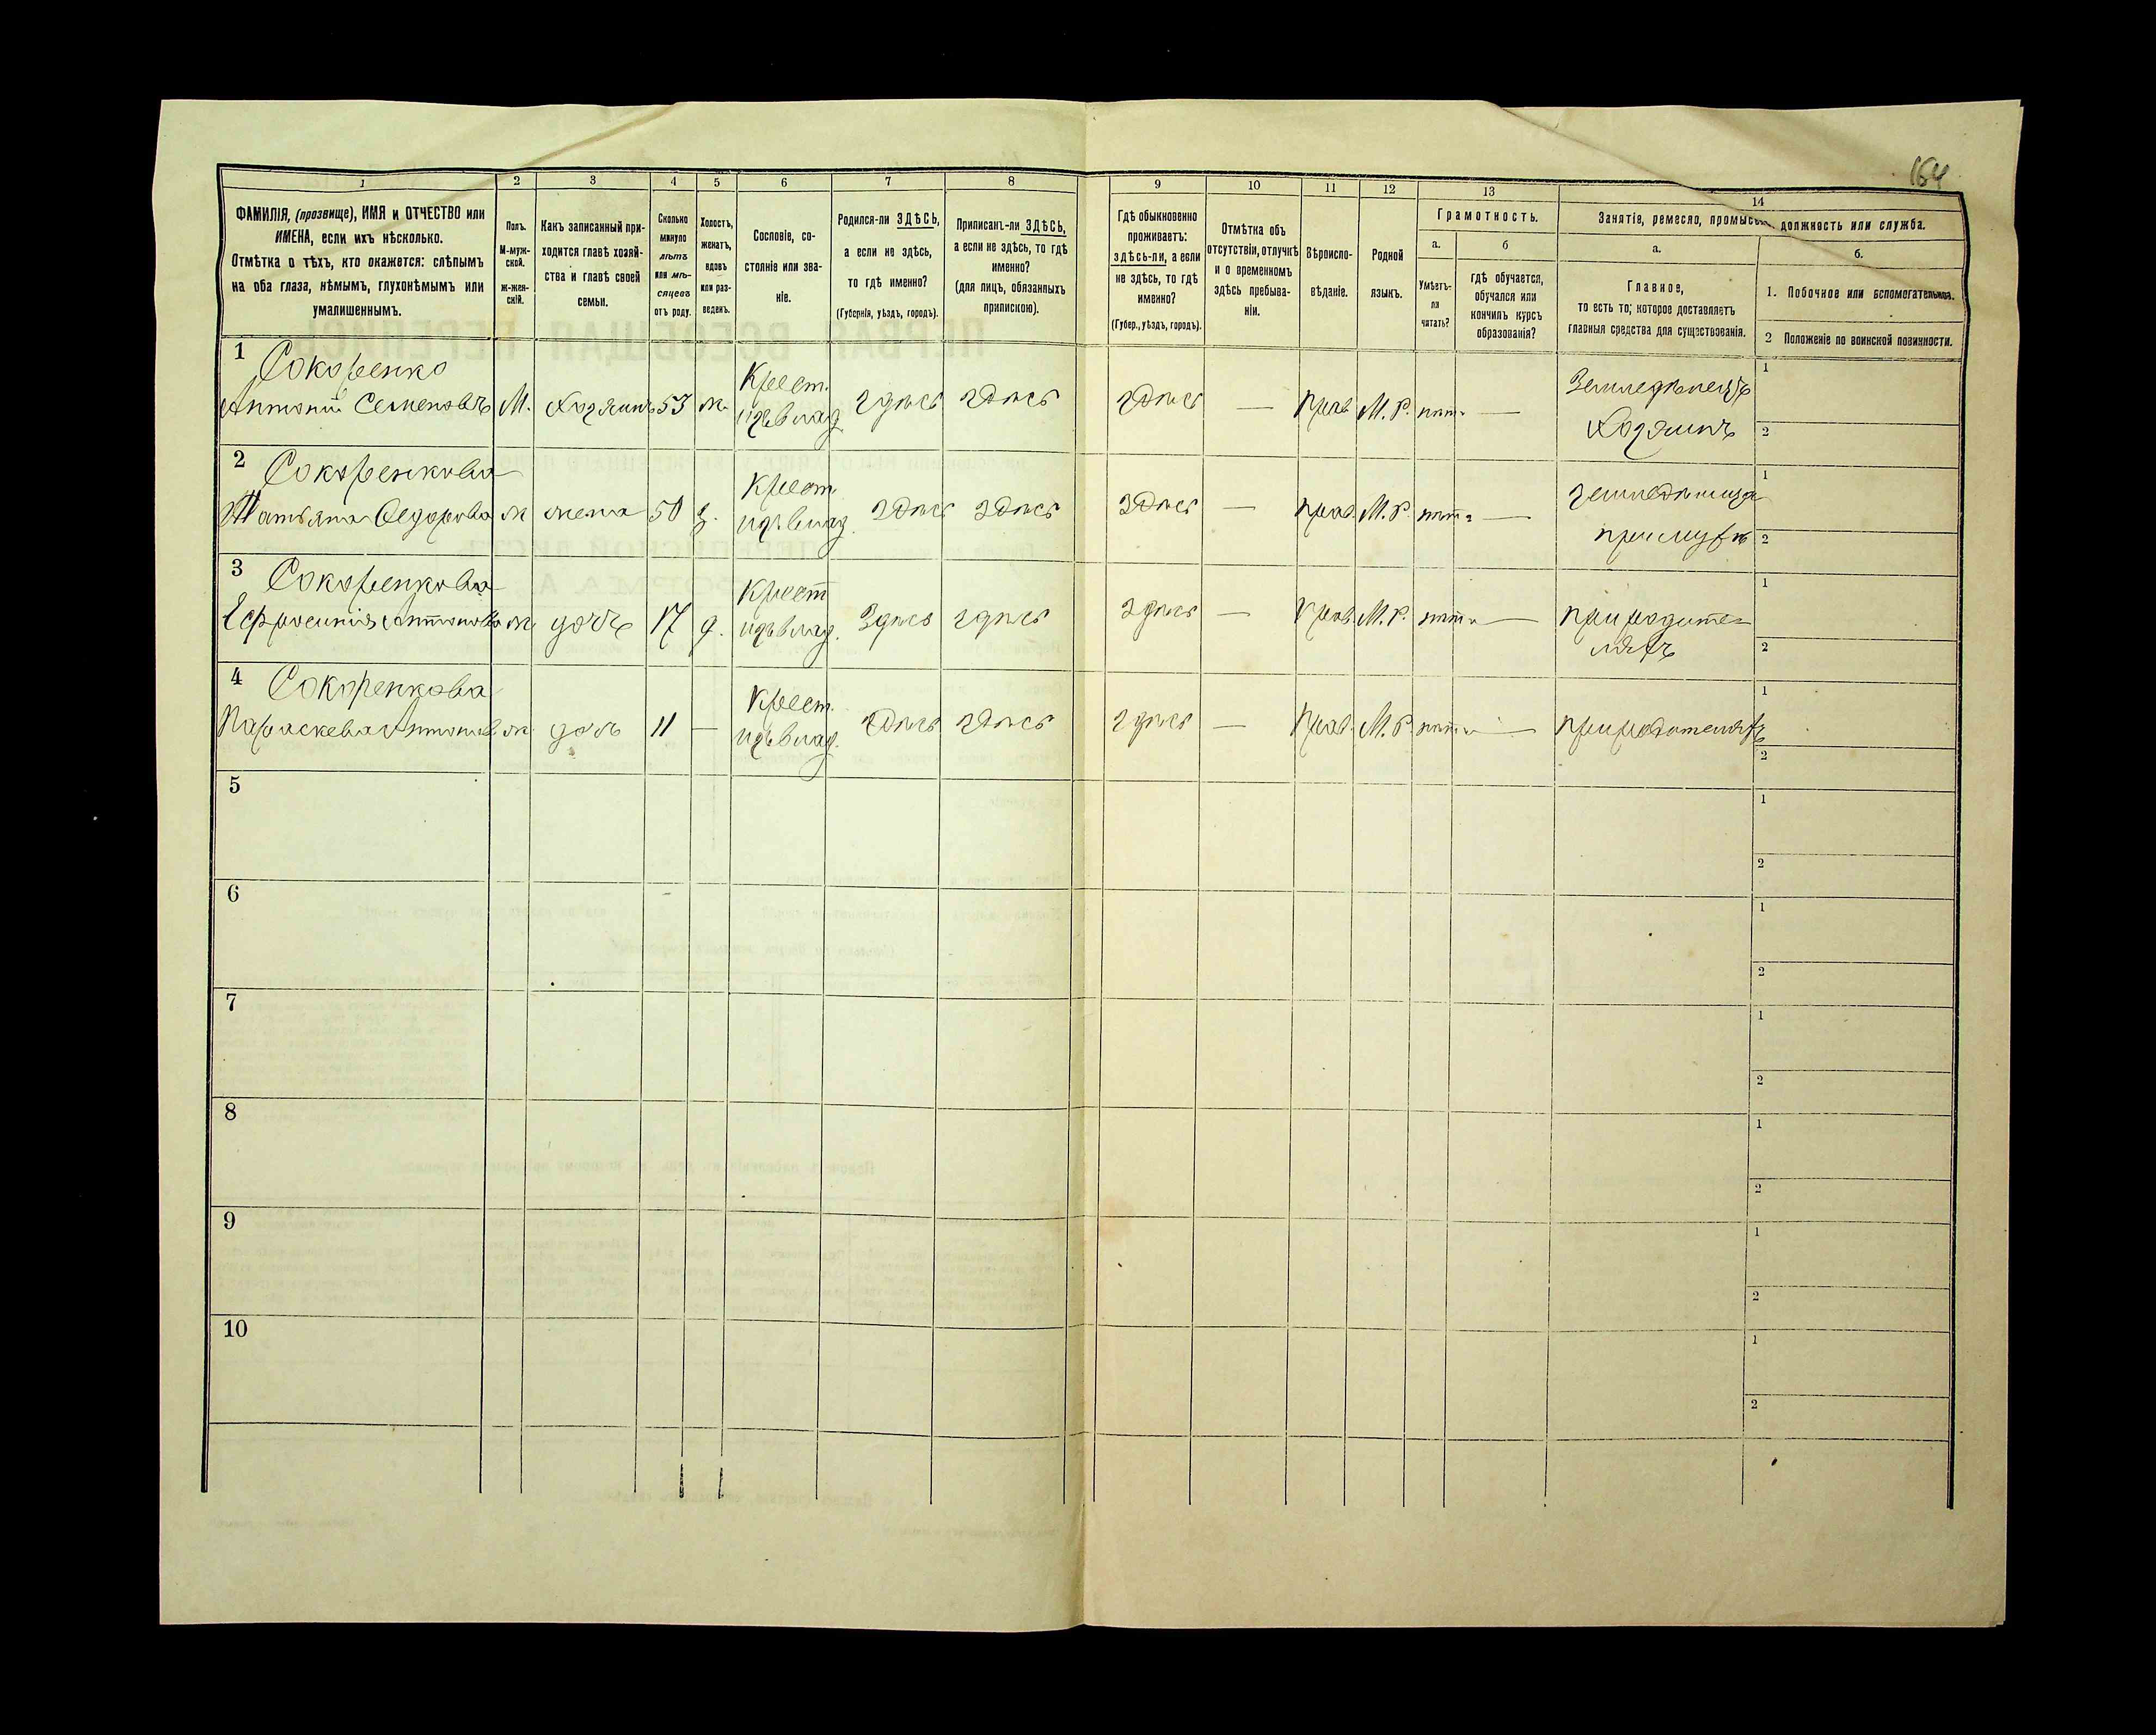 164
1 2 3 4 5 6 7 8 9 10 11 12 13 14
ФАМИЛІЯ, (прозвище), ИМЯ и ОТЧЕСТВО или
ИМЕНА, если ихъ нѣсколько.
Отмѣтка о тѣхъ, кто окажется: слѣпымъ
на оба глаза, нѣмымъ, глухонѣмымъ или
умалишеннымъ.
Полъ.
М-муж-
ской.
ж-жен-
скій.
Какъ записанный при-
ходится главѣ хозяй-
ства и главѣ своей
семьи.
Сколько
минуло
лѣтъ
или мѣ-
сяцевъ
отъ роду.
Холостъ,
женатъ,
вдовъ
или раз-
веденъ.
Сословіе, со-
стояніе или зва-
ніе.
Родился-ли ЗДѢСЬ,
а если не здѣсь,
то гдѣ именно?
(Губернія, уѣздъ, городъ).
Приписанъ-ли ЗДѢСЬ,
а если не здѣсь, то гдѣ
именно?
(для лицъ, обязанныхъ
припискою).
Гдѣ обыкновенно
проживаетъ:
здѣсь-ли, а если
не здѣсь, то гдѣ
именно?
(Губер., уѣздъ, городъ).
Отмѣтка объ
отсутствіи, отлучкѣ
и о временномъ
здѣсь пребыва-
ніи.
Вѣроиспо-
вѣданіе.
Родной
языкъ.
Грамотность.
а.
Умѣетъ-
ли
читать?
б
гдѣ обучается,
обучался или
кончилъ курсъ
образованія?
Занятіе, ремесло, промыс должность или служба.
а.
Главное,
то есть то, которое доставляетъ
главныя средства для существованія.
б.
1. Побочное или вспомогательное.
2 Положеніе по воинской повинности.
1 Сокоренко Крест. Земледѣлецъ 1
Антоній Семеновъ М. Хозяинъ 53 ж. изъ влад. здѣсь здѣсь здѣсь — Прав. М. Р. нѣтъ — Хозяинъ 2
2 Сокоренкова Крест. 1
Татьяна Федорова ж жена 50 з. изъ влад. здѣсь здѣсь здѣсь — прав. М. Р. нѣтъ — при мужѣ 2
3 Сокоренкова Крест при родите- 1
Ефросинія Антонова ж дочь 17 д. изъ влад. здѣсь здѣсь здѣсь — Прав. М. Р. нѣтъ — ляхъ 2
4 Сокоренкова Крест. 1
Параскева Антонов ж дочь 11 — изъ влад. здѣсь здѣсь здѣсь — Прав. М. Р. нѣтъ — при родителяхъ 2
5 1
2
6 1
2
7 1
2
8 1
2
9 1
2
10 1
2